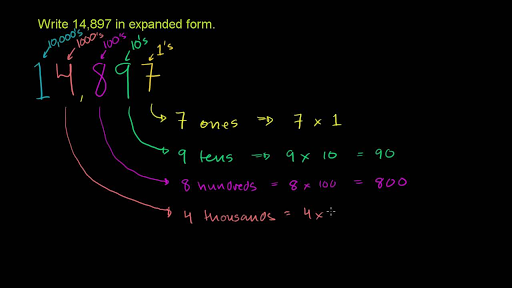 Write 14,897 in expanded form.
10,000's 1000's 100's 10's 1's
14,897
7 ones ⇒ 7 × 1
9 tens ⇒ 9 × 10 = 90
8 hundreds = 8 × 100 = 800
4 thousands = 4 ×